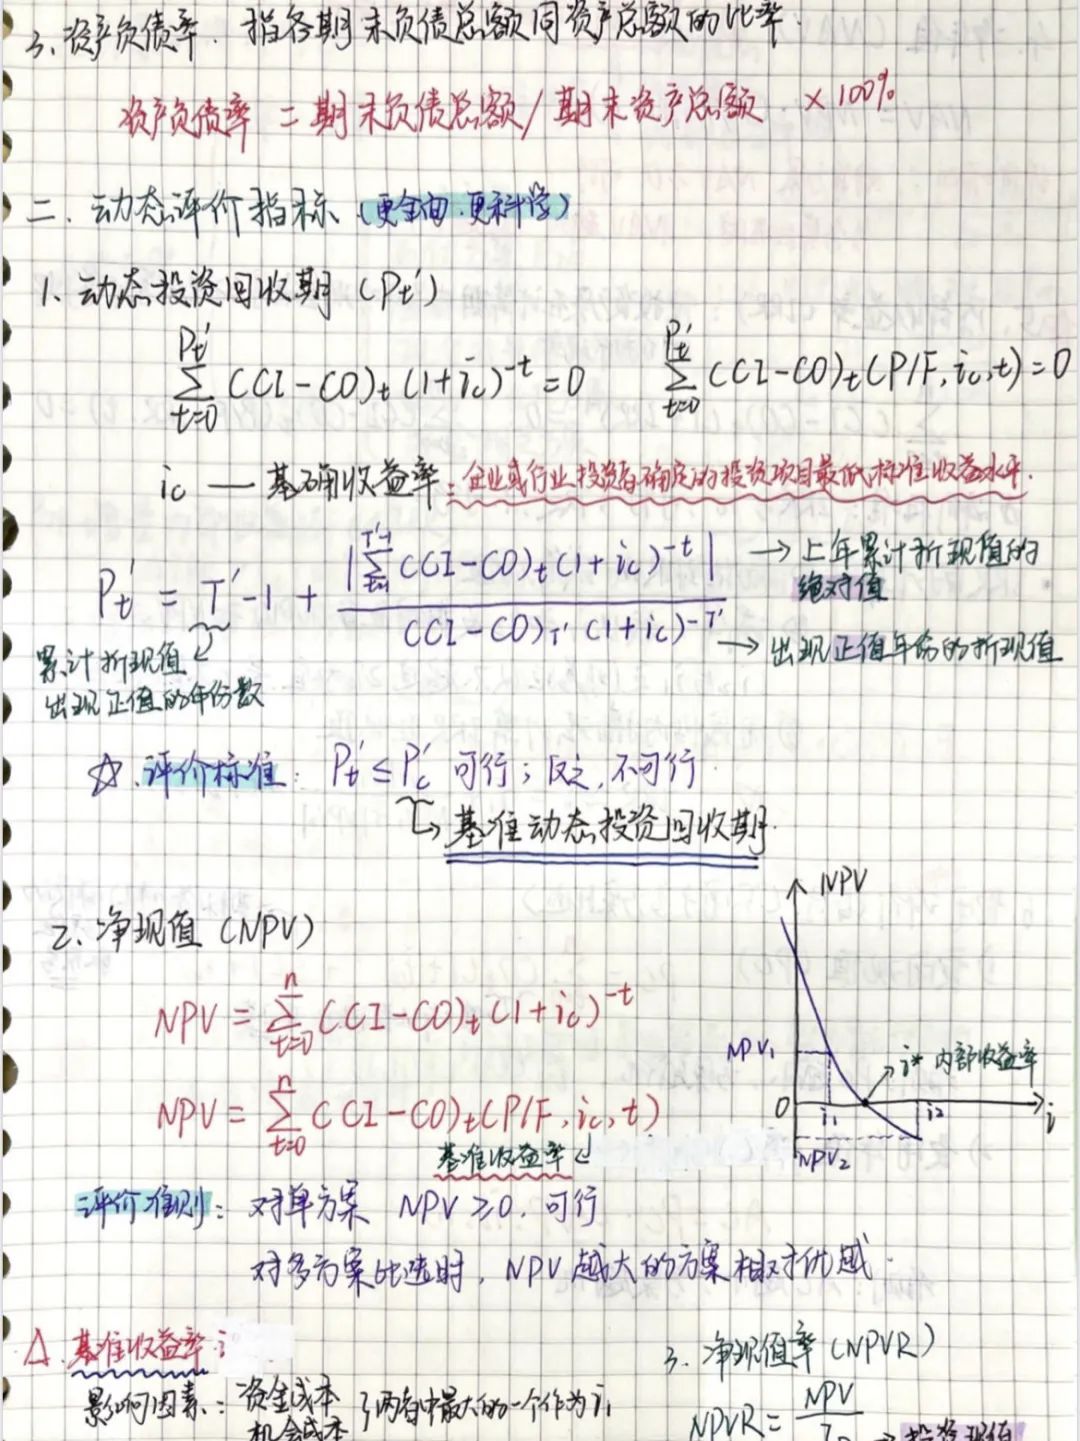 3、资产负债率. 指各期末负债总额同资产总额的比率.
资产负债率 = 期末负债总额/期末资产总额 ×100%
二、动态评价指标、(更全面.更科学)
1、动态投资回收期(Pt′)
∑_{t=0}^{Pt′}(CI-CO)t(1+ic)^{-t}=0 ∑_{t=0}^{Pt′}(CI-CO)t(P/F,ic,t)=0
ic — 基准收益率:企业或行业投资者确定的投资项目最低标准收益水平.
Pt′ = T′-1 + |∑_{t=1}^{T′-1}(CI-CO)t(1+ic)^{-t}| / (CI-CO)T′(1+ic)^{-T′}
→上年累计折现值的
绝对值
→出现正值年份的折现值
累计折现值
出现正值的年份数
☆.评价标准: Pt′≤Pc′ 可行;反之,不可行.
↳基准动态投资回收期.
2、净现值(NPV)
NPV = ∑_{t=0}^{n}(CI-CO)t(1+ic)^{-t}
NPV = ∑_{t=0}^{n}(CI-CO)t(P/F,ic,t)
基准收益率
NPV
NPV₁
i* 内部收益率
0 i₁ i₂ i
NPV₂
评价准则: 对单方案 NPV≥0,可行
对多方案比选时,NPV越大的方案相对优越.
△.基准收益率i
影响因素: 资金成本
机会成本
}两者中最大的一个作为i₁
3、净现值率(NPVR)
NPVR = NPV/Ip →投资现值